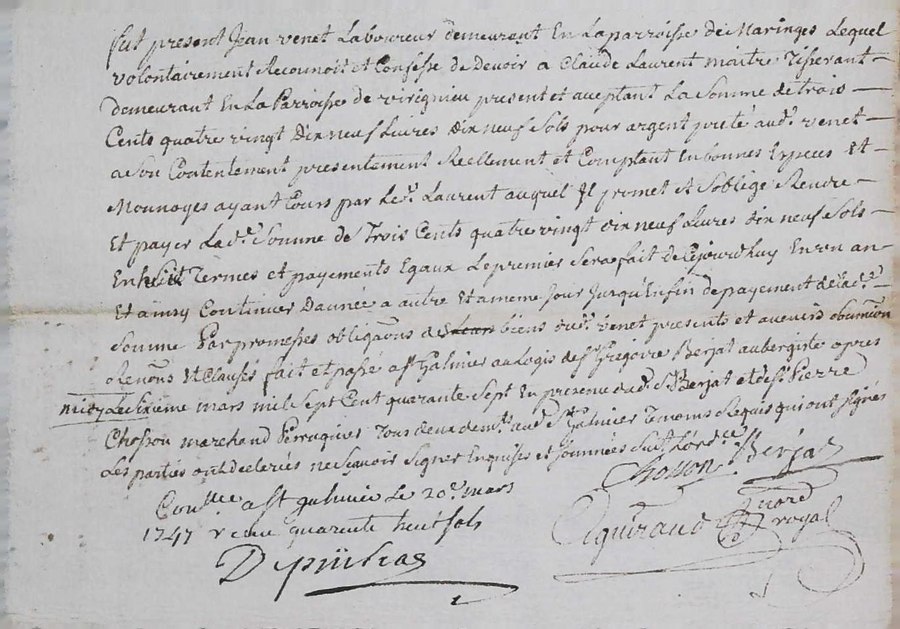 fut présent Jean venet Laboureur demeurant En Laparroisse de Maringes Lequel
volontairement Reconnoit et Confesse de Devoir a Claude Laurent maitre Tisserant
demeurant En La Parroisse de virignieu present et aceptant La Somme de trois
Cents quatre vingt dix neuf Livres dix neuf Sols pour argent preté aud.t venet
a Son Contentement presentement Reellement et Comptant En bonnes Especes Et
Monnoyes ayant Cours par Led.t Laurent auquel Il promet et Soblige Rendre
Et payer Lad.e Somme de Trois Cents quatre vingt dix neuf Livres dix neuf Sols
En huit Termes et payements Egaux Le premier Sera fait de Cejourdhuy En un an
Et ainsy Continuer Dannée a autre Et a meme Jour Jusqu'Enfin de payement de lad.e
Somme Par promesses obligaons de biens dud.t venet presents et avenirs
Renons Et Clauses fait et passé a St Galmier au Logis de Sr Gregoire Berjat aubergiste apres
midy Le Sixieme mars mil Sept Cent quarante Sept En presence dud. Sr Berjat et de Sr Pierre
Chosson marchand Perruquier Tous deux dem.ts aud. St Galmier Temoins Requis qui ont signés
Les parties ont declerés ne Scavoir Signer Enquises et Sommées
Chosson Berjat
Con.lle a St galmier le 20.e mars
1747 r ceu quarente huit sols
royal